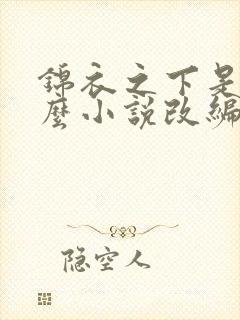 錦衣之下是
麼小說改編
隐空人